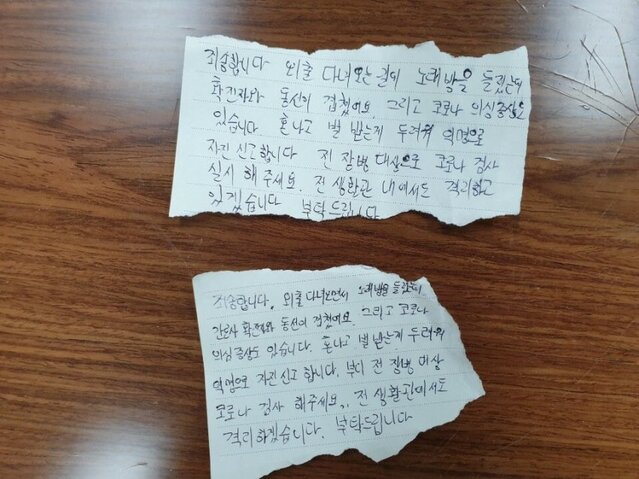 죄송합니다 외출 다녀오는길에 노래방을 들렸는데
확진자와 동선이 겹쳤어요. 그리고 코로나 의심증상도
있습니다 혼나고 벌 받는게 두려워 익명으로
자진신고합니다 전 장병 대상으로 코로나 검사
실시 해주세요. 전 생활관 내에서도 격리하고
있겠습니다 부탁드립니다
죄송합니다. 외출 다녀오면서 노래방을 들렸는데
간호사 확진자와 동선이 겹쳤어요. 그리고 코로나
의심증상도 있습니다. 혼나고 벌받는게 두려워
익명으로 자진신고 합니다. 부디 전 장병 대상
코로나 검사 해주세요.. 전 생활관에서도
격리하겠습니다. 부탁드립니다